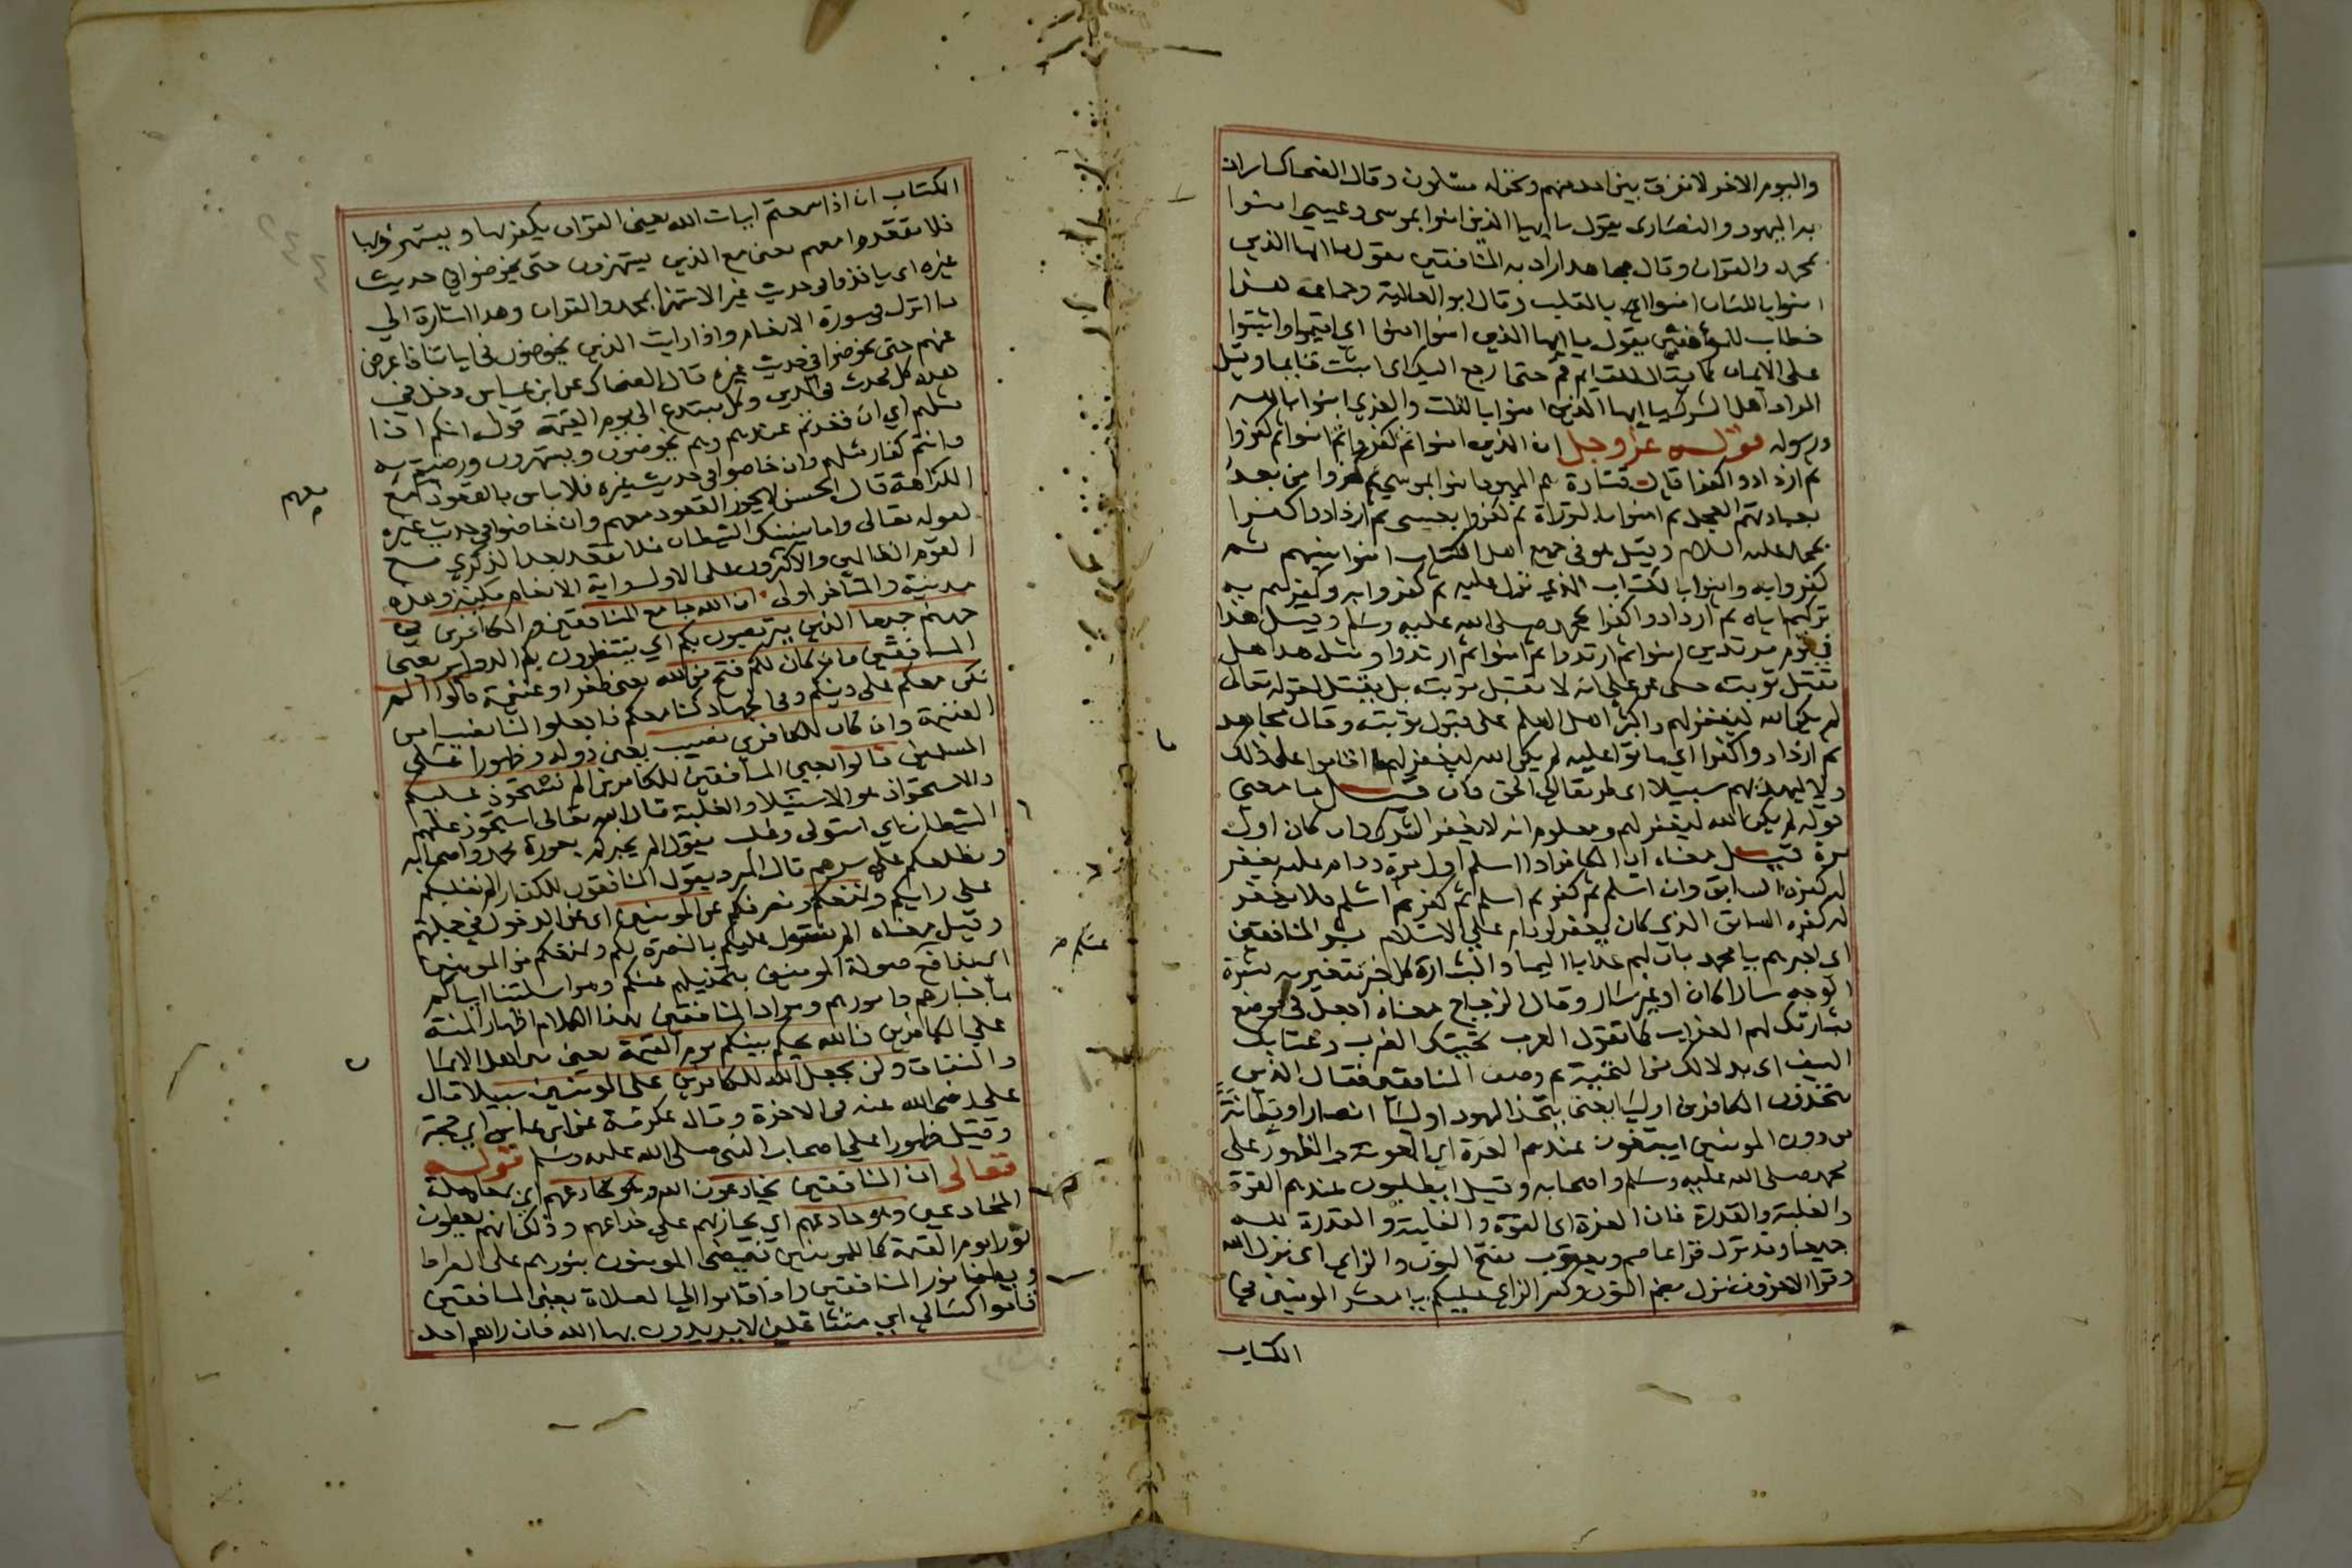 واليوم الاخر لا نفرق بين احد منهم ونحن له مسلمون وقال الضحاك اراد
به اليهود والنصارى يقول يا ايها الذين امنوا بموسى وعيسى امنوا
بمحمد والقران وقال مجاهد اراد به المنافقين يقول يا ايها الذين
امنوا باللسان امنوا اي بالقلب وقال ابو العالية وجماعة هذا
خطاب للمؤمنين يقول يا ايها الذين امنوا امنوا اي اقيموا واثبتوا
على الايمان كما يقال للقايم قم حتى ارجع اليك اي اثبت قايما وقيل
المراد اهل الشرك يا ايها الذين امنوا باللات والعزى امنوا بالله
ورسوله قوله عز وجل ان الذين امنوا ثم كفروا ثم امنوا ثم كفروا
ثم ازدادوا كفرا قال قتادة هم اليهود امنوا بموسى ثم كفروا من بعد
بعبادتهم العجل ثم امنوا بالتوراة ثم كفروا بعيسى ثم ازدادوا كفرا
بمحمد عليه السلام وقيل هو في جميع اهل الكتاب امنوا بنبيهم ثم
كفروا به وامنوا بالكتاب الذي نزل عليه ثم كفروا به وكفرهم به
تركهم اياه ثم ازدادوا كفرا بمحمد صلى الله عليه وسلم وقيل هذا
في قوم مرتدين امنوا ثم ارتدوا ثم امنوا ثم ارتدوا ومثل هذا هل
تقبل توبته حكي عن علي انه لا تقبل توبته بل يقتل لقوله تعالى
لم يكن الله ليغفر لهم واكثر اهل العلم على قبول توبته وقال مجاهد
ثم ازدادوا كفرا اي ماتوا عليه لم يكن الله ليغفر لهم ما اقاموا على ذلك
ولا ليهديهم سبيلا اي طريقا الى الحق فان قيل ما معنى
قوله لم يكن الله ليغفر لهم ومعلوم انه لا يغفر الشرك وان كان اول
مرة قيل معناه ان الكافر اذا اسلم اول مرة ودام عليه يغفر
له كفره السابق وان اسلم ثم كفر ثم اسلم ثم كفر ثم اسلم فلا يغفر
له كفره السابق الذي كان يغفر لو دام على الاسلام بشر المنافقين
اي اخبرهم يا محمد بان لهم عذابا اليما والبشارة كل خبر يتغير به بشرة
الوجه سارا كان او غير سار وقال الزجاج معناه اجعل في موضع
بشارتك لهم العذاب كما تقول العرب تحيتك الضرب وعتابك
السيف اي بدلا لك من التحية ثم وصف المنافقين فقال الذين
يتخذون الكافرين اوليا يعني يتخذ اليهود اوليا انصارا وبطانة
من دون المومنين ايبتغون عندهم العزة اي المعونة والظهور على
محمد صلى الله عليه وسلم واصحابه وقيل ايطلبون عندهم القوة
والغلبة والقدرة فان العزة اي القوة والغلبة والقدرة لله
جميعا وقد نزل قرا عاصم ويعقوب بفتح النون والزاي اي نزل الله
وقرا الاخرون نزل بضم النون وكسر الزاي عليكم يا معشر المومنين في
الكتاب
الكتاب ان اذا سمعتم ايات الله يعني القران يكفر بها ويستهزا بها
فلا تقعدوا معهم يعني مع الذين يستهزون حتى يخوضوا في حديث
غيره اي ياخذوا في حديث غير الاستهزا بمحمد والقران وهذا اشارة الى
ما انزل في سورة الانعام واذا رايت الذين يخوضون في اياتنا فاعرض
عنهم حتى يخوضوا في حديث غيره قال الضحاك عن ابن عباس دخل في
هذه كل محدث في الدين وكل مبتدع الى يوم القيمة قوله انكم اذا
مثلهم اي ان قعدتم عندهم وهم يخوضون ويستهزون ورضيتم به
فانتم كفار مثلهم وان خاضوا في حديث غيره فلا باس بالقعود مع
معهم
الكراهة قال الحسن لا يجوز القعود معهم وان خاضوا في حديث غيره
لقوله تعالى واما ينسينك الشيطان فلا تقعد بعد الذكرى مع
القوم الظالمين والاكثرون على الاول واية الانعام مكية وهذه
مدنية والمتاخر اولى ان الله جامع المنافقين والكافرين في
جهنم جميعا الذين يتربصون بكم اي ينتظرون بكم الدواير يعني
المنافقين فان كان لكم فتح من الله يعني ظفر او غنيمة قالوا الم
نكن معكم على دينكم وفي الجهاد كنا معكم فاجعلوا لنا نصيبا من
الغنيمة وان كان للكافرين نصيب يعني دولة وظهورا على
المسلمين قالوا يعني المنافقين للكافرين الم نستحوذ عليكم
والاستحواذ هو الاستيلا والغلبة قال الله تعالى استحوذ عليهم
الشيطان اي استولى وغلب يقول الم نخبركم بعورة محمد واصحابه
ونطلعكم على سرهم قال المبرد يقول المنافقون للكفار الم نغلبكم
على رايكم ونمنعكم ونصرفكم عن المومنين اي عن الدخول في جملتهم
وقيل معناه الم نستول عليكم بالنصرة لكم ونمنعكم من المومنين
اي ندفع صولة المومنين بتخذيلهم عنكم ومراسلتنا اياكم
عنكم
باخبارهم وامورهم ومراد المنافقين بهذا الكلام اظهار المنة
على الكافرين فالله يحكم بينكم يوم القيمة يعني بين اهل الايمان
والنفاق ولن يجعل الله للكافرين على المومنين سبيلا قال
علي رضي الله عنه في الاخرة وقال عكرمة عن ابن عباس اي حجة
وقيل ظهورا على اصحاب النبي صلى الله عليه وسلم قوله
تعالى ان المنافقين يخادعون الله وهو خادعهم اي يعاملونه معاملة
المخادعين وهو خادعهم اي يجازيهم على خداعهم وذلك انهم يعطون
نورا يوم القيمة كما للمومنين فيمضي المومنون بنورهم على الصراط
ويطفا نور المنافقين واذا قاموا الى الصلاة يعني المنافقين
قاموا كسالى اي متثاقلين لا يريدون بها الله فان راهم احد